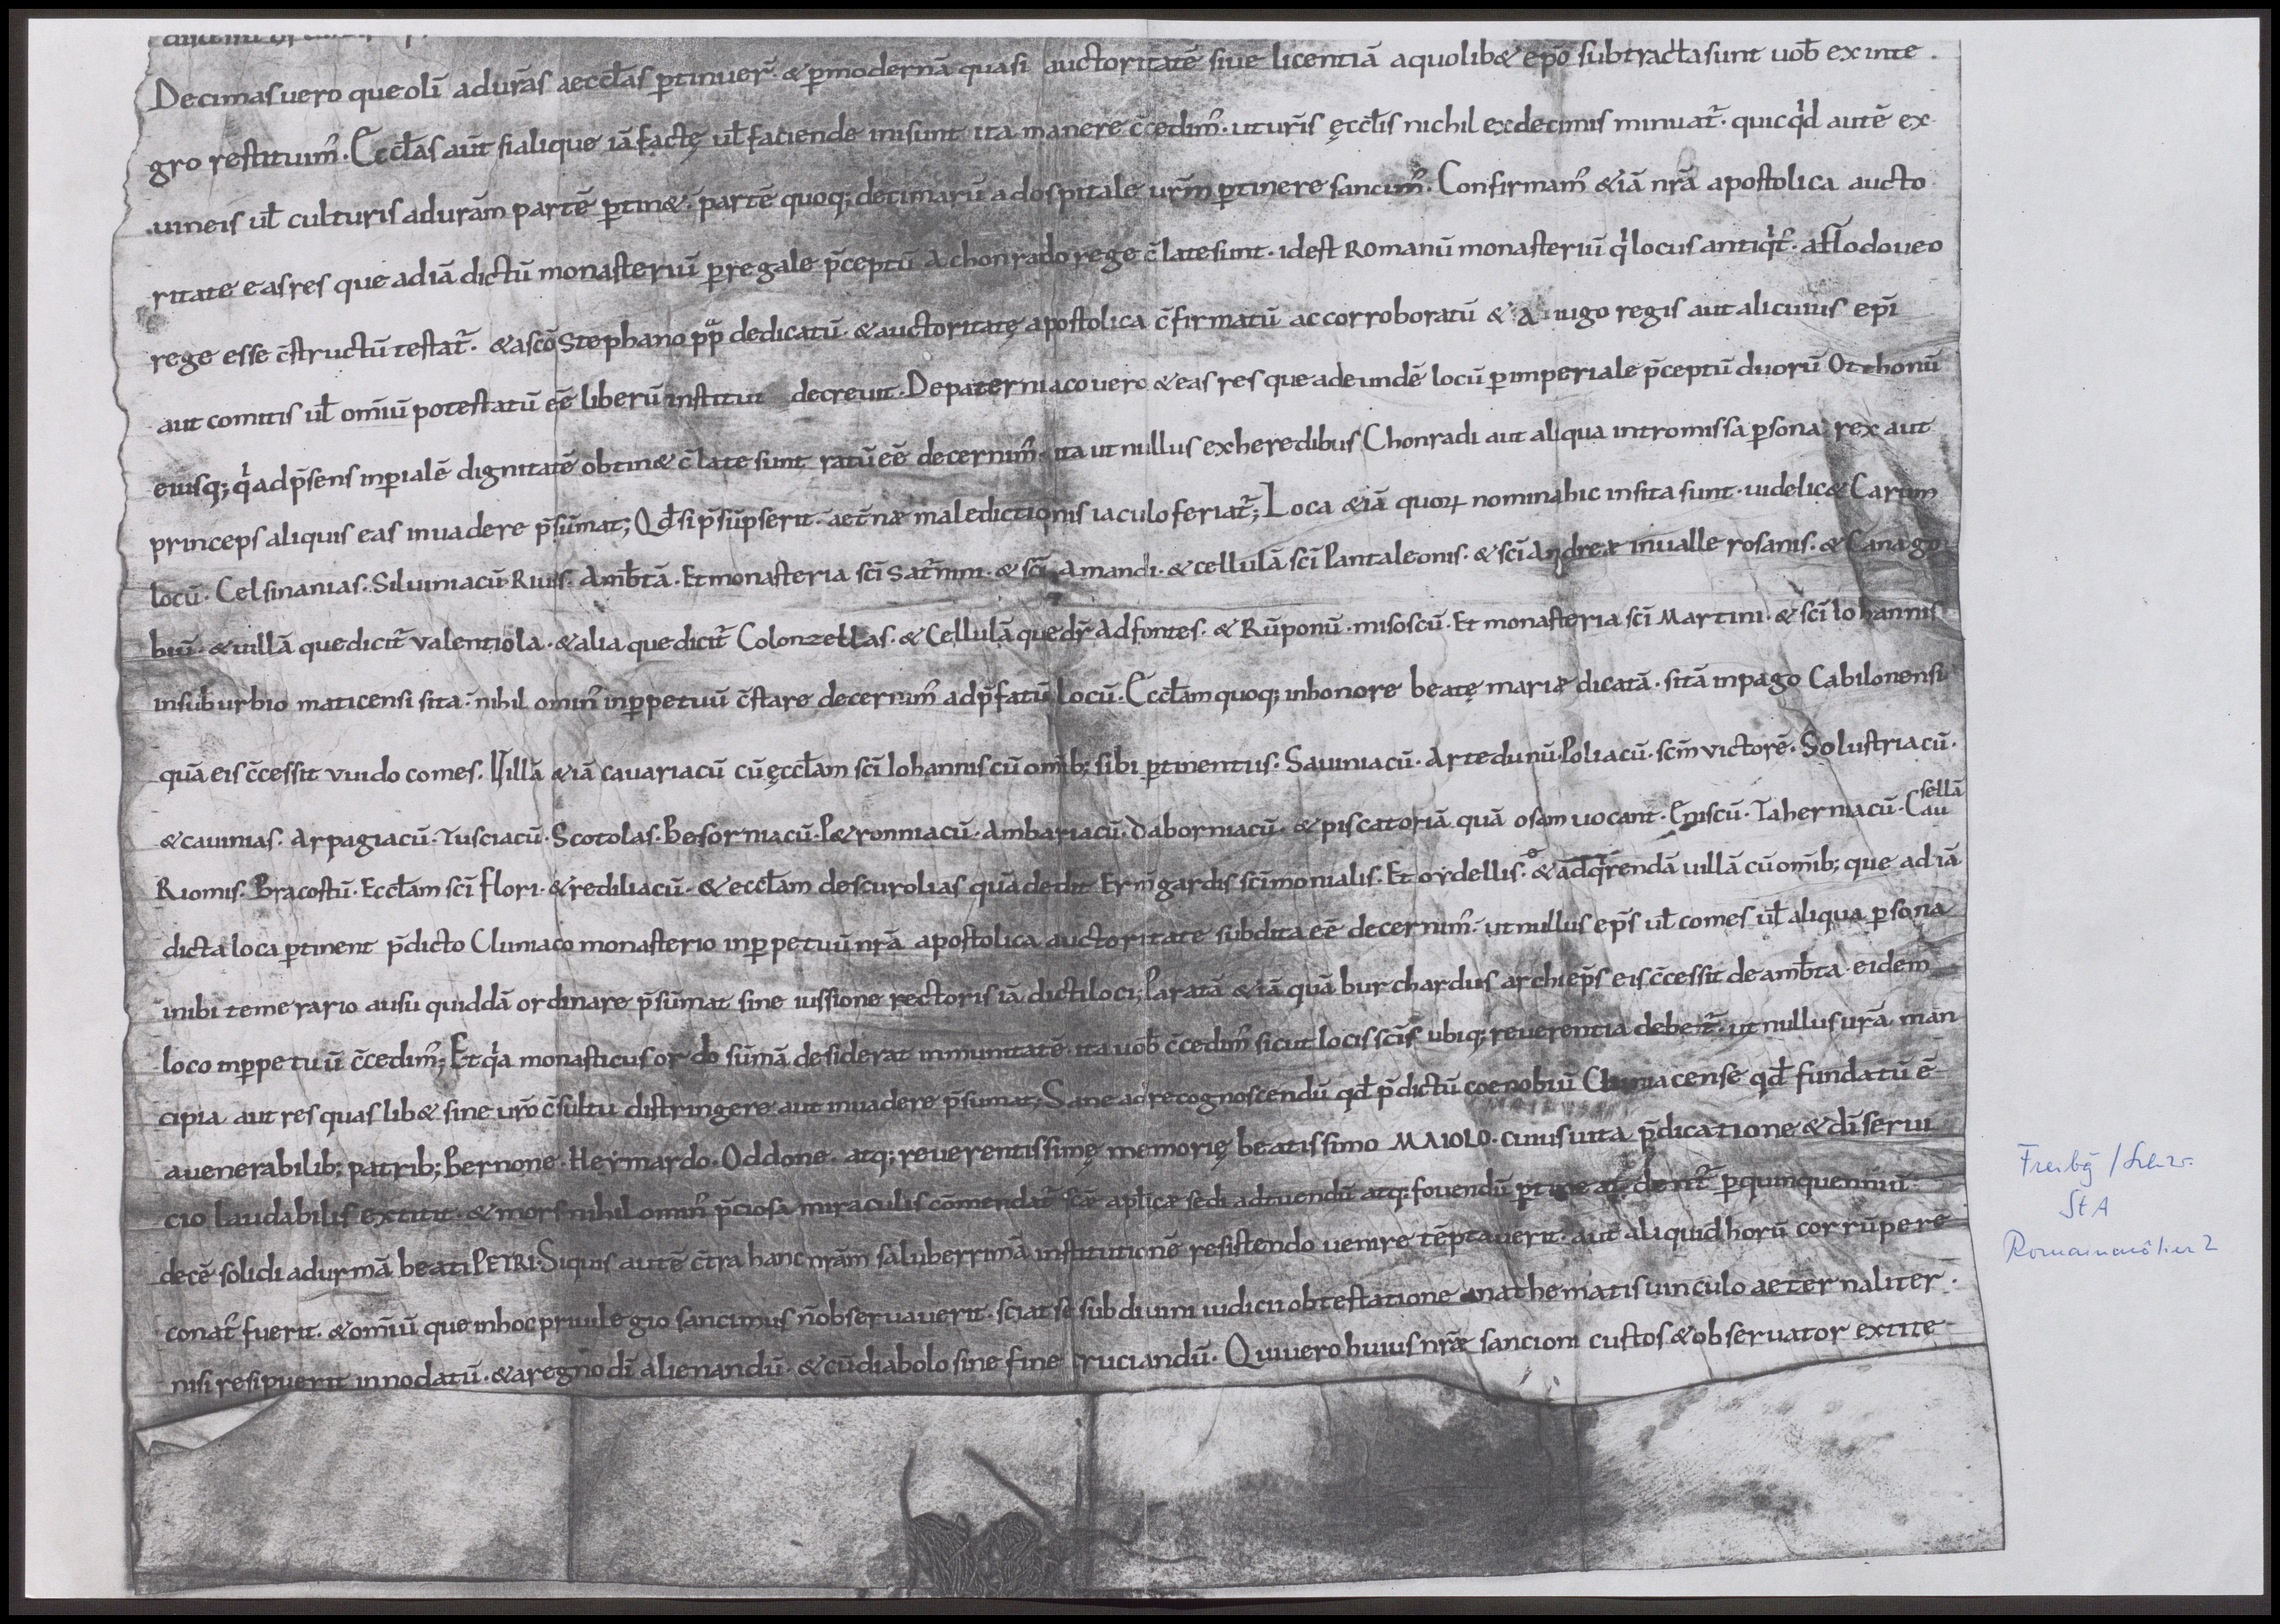 Decimas uero que olī ad ur̄as aeccl̄as ꝑtinuer̄ · & ꝑ modernā quasi auctoritatē siue licentiā a quolib& ep̄o subtractasunt uob̄ ex inte
gro restituim᷒. Ęccl̄as aūt si alique iā factę ul̄ faciende inisunt ita manere c̄cedim᷒ · ut ur̄is ęccl̄is nichil ex decimis minuat᷒ · quicqͥd autē ex
uineis ul̄ culturis ad urām partē ꝑtin& · partē quoq; decimarū ad ospitale ur̄m ꝑtinere sancim᷒. Confirmam᷒ & iā nr̄a apostolica aucto
ritate eas res que ad iā dictū monasteriū ꝑ regale p̄ceptū A chonrado rege c̄late sunt · id est Romanū monasteriū qͥ locus antiqͥt᷒ · a hlodoueo
rege esse c̄structū testat᷒ · & a sc̄o Stephano pp̄ dedicatū · & auctoritatę apostolica c̄firmatū ac corroboratū & A iugo regis aut alicuius ep̄i
aut comitis ul̄ om̄iū potestatū eē liberū instituit decreuit. De paterniaco uero & eas res que ad eundē locū ꝑ imperiale p̄ceptū duorū Otthonū
eiusq; qͥ ad p̄sens inꝑialē dignitatē obtin& c̄late sunt ratū eē decernim᷒ · ita ut nullus ex heredibus Chonradi aut aliqua intromissa ꝑsona rex aut
princeps aliquis eas inuadere p̄sūmat; Qd̄ si p̄sūpserit · aet̄næ maledictionis iaculo feriat᷒; Loca & iā quoꝝ nomina hic insita sunt · uidelic& Carum
locū · Celsinanias · Siluiniacū · Riuis · Amb̄tā · Et monasteria sc̄i Sat᷒nini · & sc̄i Amandi · & cellulā sc̄i Pantaleonis · & sc̄i Andreæ in ualle rosanis · & Canago
biū · & uillā que dicit᷒ valentiola · & alia que dicit᷒ Colonzellas · & Cellulā que dr̄ Ad fontes · & Rūponū · misoscū · Et monasteria sc̄i Martini · & sc̄i Iohannis
in suburbio maticensi sita · nihil omin᷒ inꝑpetuū c̄stare decernim᷒ ad p̄fatū locū. Ęccl̄am quoq; in honore beatę mariæ dicatā · sitā in pago Cabilonensi
quā eis c̄cessit vuido comes. Uillā & iā cauariacū cū ęccl̄am sc̄i Iohannis cū om̄ib; sibi ꝑtinentiis · Sauiniacū · Artedunū · Poliacū · sc̄m victorē · Solustriacū ·
& cauinias · Arpagiacū · Tusciacū · Scotolas · Besorniacū · P&ronniacū · Ambariacū · Daborniacū · & piscatoriā quā osam uocant · Eniscū · Taherniacū · Cau
sellā
Riomis · Bracostū · Eccl̄am sc̄i flori · & rediliacū · & eccl̄am de scurolias quā dedit Erm̄gardis sc̄imonialis · Et ordellis · & ādqͥrendā uillā cū om̄ib; que ad iā
dicta loca ꝑtinent p̄dicto Cluniaco monasterio inꝑpetuū nr̄a apostolica auctoritate subdita eē decernim᷒ · ut nullus ep̄s ul̄ comes ul̄ aliqua ꝑsona
inibi temerario ausu quiddā ordinare p̄sūmat sine iussione rectoris iā dicti loci; Paratā & iā quā burchardus archiep̄s eis c̄cessit de amb̄ta · eidem
loco inꝑpetuū c̄cedim᷒; Et qͥa monasticus ordo sūmā desiderat inmunitatē · ita uob̄ c̄cedim᷒ sicut locis sc̄is ubiq; reuerentia debet᷒ · ut nullus urā man
cipia aut res quaslib& sine ur̄o c̄sultu distringere aut inuadere p̄sumat; Sane ad recognoscendū qd̄ p̄dictū coenobiū Cluniacense qd̄ fundatū ē
a uenerabilib; patrib; Bernone · Heymardo · Oddone · atq; reuerentissimę memorię beatissimo MAIOLO · cuius uita p̄dicatione & dī serui
cio laudabilis extitit · & mors nihil omin᷒ p̄ciosa miraculis cōmendat᷒ sc̄æ apl̄icæ sedi ad tuendū atq; fouendū ꝑtineat dent᷒ ꝑ quinquenniū
decē solidi ad urmā beati PETRI. Si quis autē c̄tra hanc nrām saluberrimā institutionē resistendo uenire tēptauerit · aut aliquid horū corrūpere
conat᷒ fuerit · & om̄iū que in hoc priuilegio sancimus n̄ obseruauerit · sciat se sub diuini iudicii obtestatione anathematis uinculo aeternaliter ·
nisi resipuerit innodatū · & a regno dī alienandū · & cū diabolo sine fine cruciandū. Qui uero huius nr̄æ sancioni custos & obseruator extite
Freibg / Schw.
StA
Romainmôtier 2